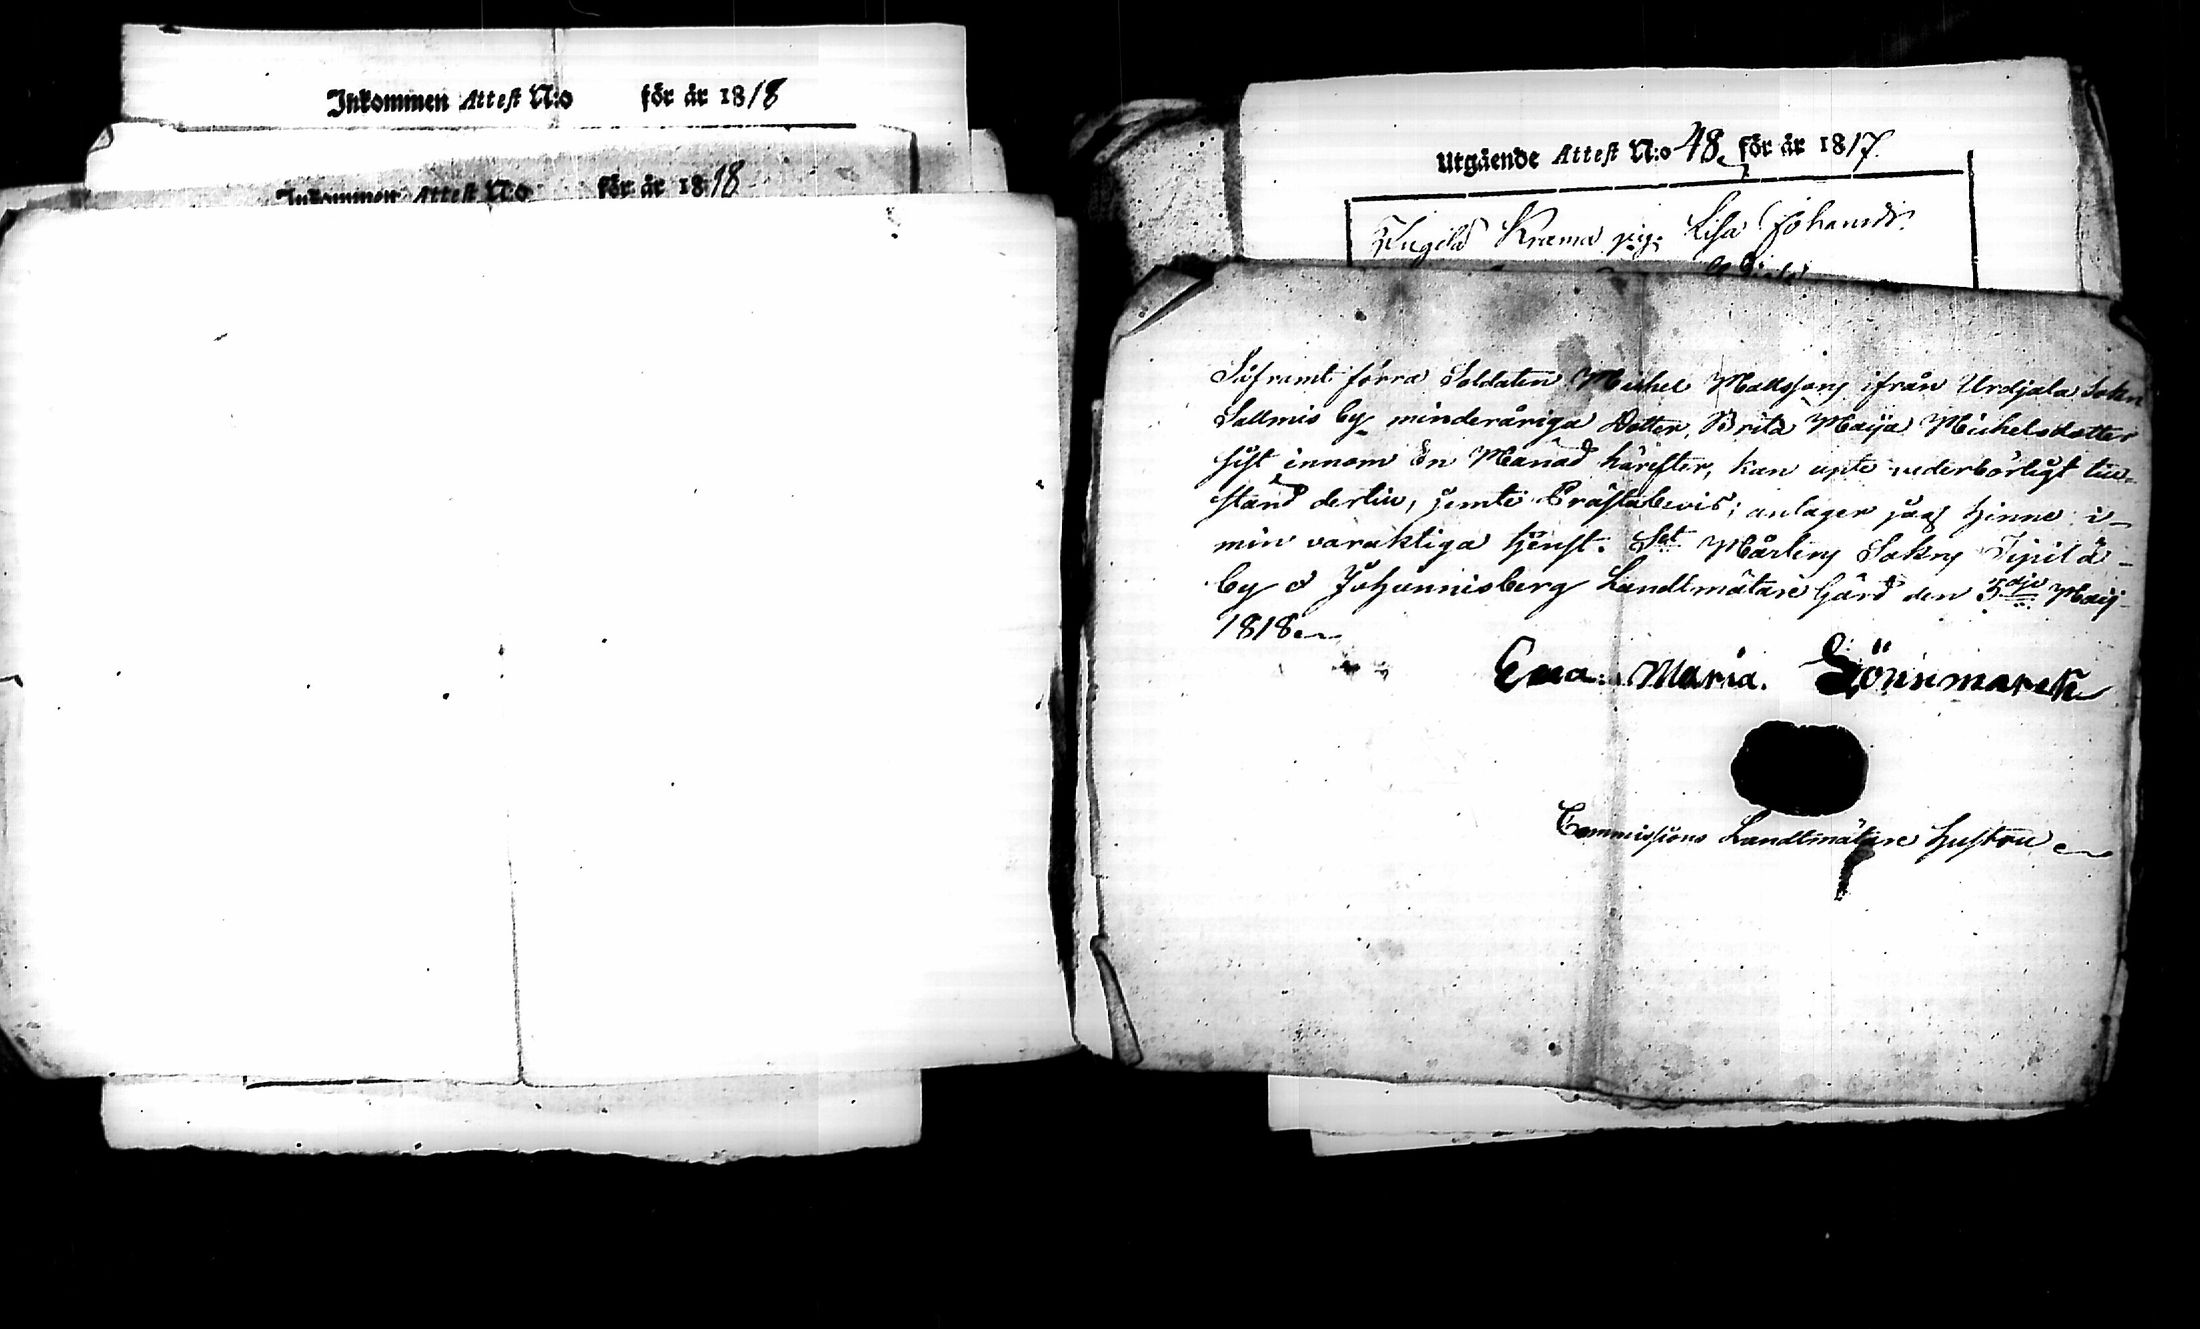 Inkommen Attest N:o för år 1818
Inkommen Attest N:o för år 1818
Utgående Attest N:o 48. för år 1817.
Krama pig. Lisa Johansdr.
Såframt förra Soldaten Michel Mattssons ifrån Urdjala Sokn
Sallmis by minderåriga Dotter, Brita Maija Michelsdotter
sist innom En Månad härefter, kan upte vederbörligt till-
stånd dertill, jemte Prästabevis; antager jag henne i
min varaktiga tjenst. Sct Mårtens Sokn
by & Johannisberg Landtmätare Gård den 5dje Maij
1818
Eva Maria Lönnmarck
Commissions Landtmätare hustru